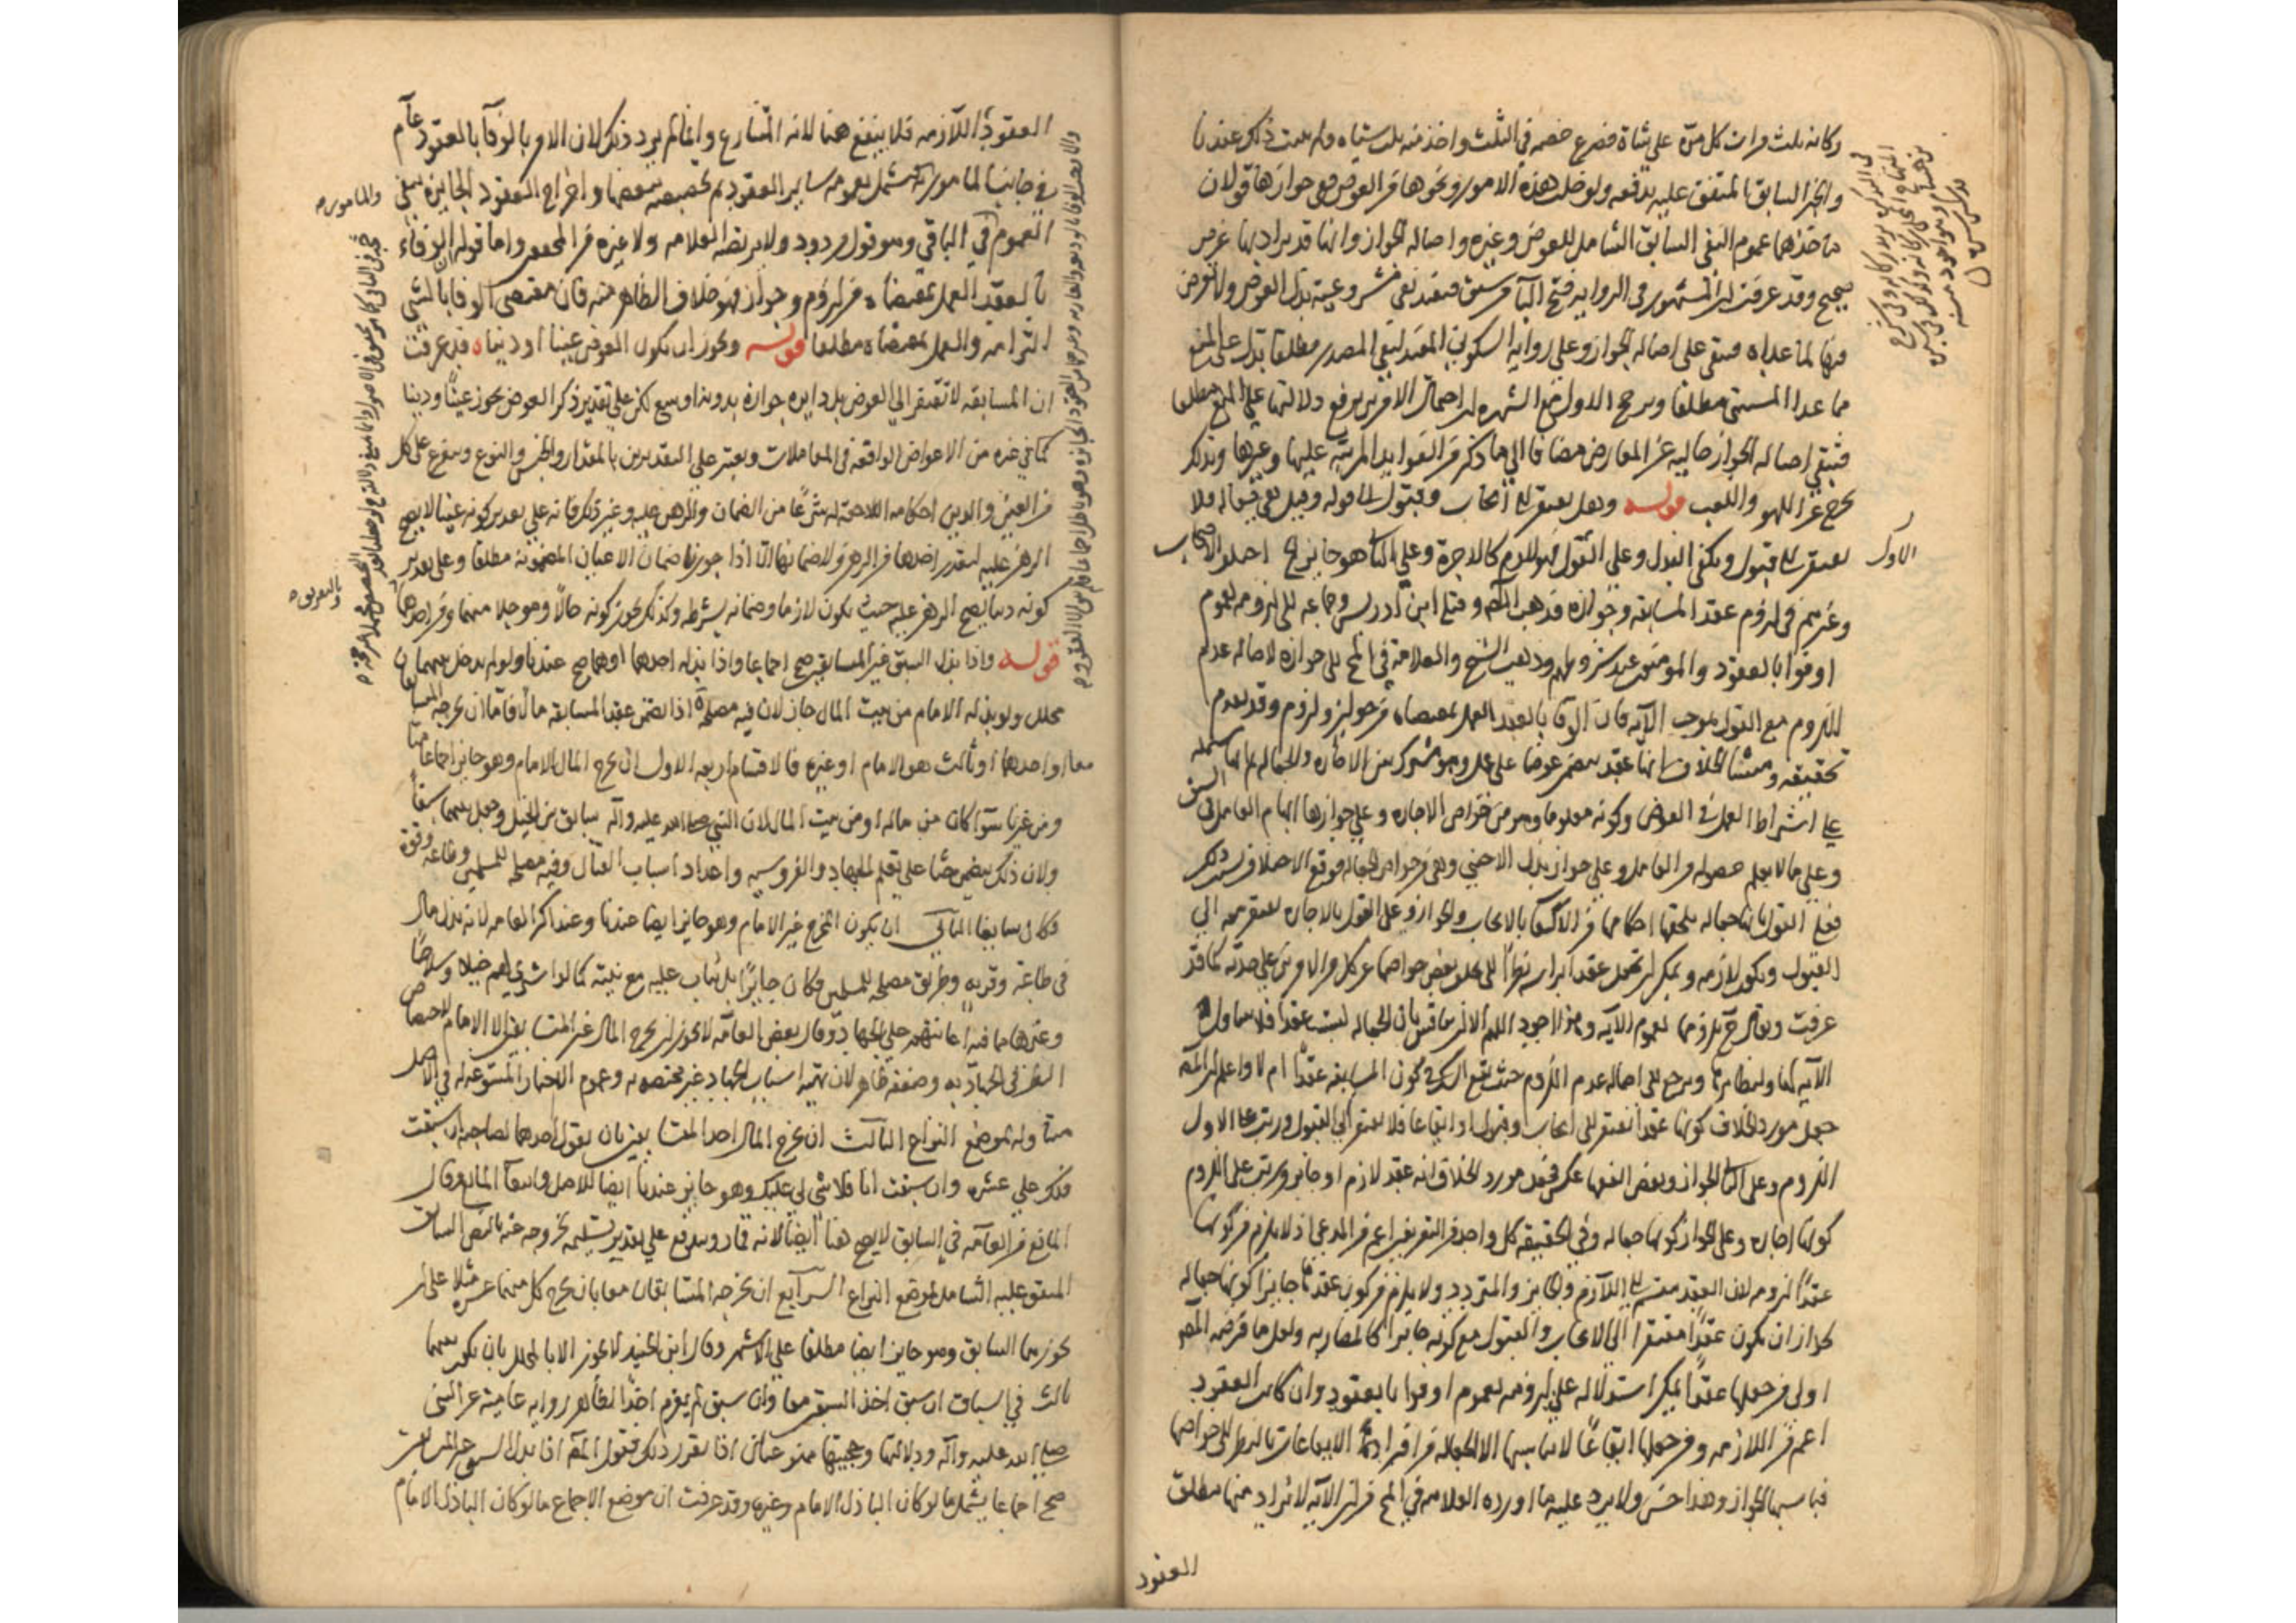 ركانه ثلث مرات كل مرة على شاة فصرع خصمه في الثلث واخذ منه ثلث شياه ولم يثبت ذلك عندنا
والخبر السابق المتفق عليه يدفعه ولو خلت هذه الامور ونحوها من العوض ففي جوازها قولان
ماخذهما عموم النهي السابق الشامل للعوض وغيره واصالة الجواز وانها قد يراد بها غرض
صحيح وقد عرفت ان المشهور في الرواية فتح الباء من سبق فيفيد نفي مشروعية بذل العوض ولا تعرض
فيها لما عداه فيبقى على اصالة الجواز وعلى رواية السكون المفيد لنفي المصدر مطلقا يدل على المنع
مما عدا المستثنى مطلقا ويرجح الاول مع الشهرة ان احتمال الامرين يرفع دلالتها على المنع مطلقا
فتبقى اصالة الجواز خالية عن المعارض مضافا الى ما ذكر من الفوايد المرتبة عليها وغيرها وبذلك
يخرج عن اللهو واللعب قوله وهل يفتقر الى ايجاب وقبول الى قوله وقيل هي جعالة فلا
يفتقر الى قبول ويكفي البذل وعلى الاول فهو لازم كالاجارة وعلى الثاني هو جايز الخ اختلف الاصحاب
وغيرهم في لزوم عقد المسابقة وجوازه فذهب المص وقبله ابن ادريس وجماعة الى لزومه لعموم
اوفوا بالعقود والمؤمنون عند شروطهم وذهب الشيخ والعلامة في المخ الى جوازه لاصالة عدم
اللزوم مع القول بموجب الآية فان الوفا بالعقد العمل بمقتضاه من جواز ولزوم وقد تقدم
تحقيقه ومنشا الخلاف انها عقد يتضمن عوضا على عمل وهو مشترك بين الاجارة والجعالة ثم انها تشتمل
على اشتراط العمل في العوض وكونه معلوما وهو من خواص الاجارة وعلى جواز ابهام العامل في السبق
وعلى ما لا يعلم حصوله من العامل وعلى جواز بذل الاجنبي وهي من خواص الجعالة فوقع الاختلاف بسبب ذلك
فعلى القول بانها جعالة يلحقها احكامها من الاكتفا بالايجاب والجواز وعلى القول بالاجارة يفتقر معه الى
القبول ويكون لازمة ويمكن ان تجعل عقدا براسه نظرا الى تخلف بعض خواصها عن كل من الامرين على حدته كما قد
عرفت ويقال ح بلزومها لعموم الآية وهذا اجود اللهم الا ان يناقش بان الجعالة ليست عقدا فلا يتناولها
الآية لها ولنظايرها ويرجع الى اصالة عدم اللزوم حيث يقع الشك في كون المسابقة عقدا ام لا واعلم ان المص
جعل مورد الخلاف كونها عقدا تفتقر الى ايجاب وقبول او ايقاعا فلا يفتقر الى القبول ورتب على الاول
اللزوم وعلى الثاني الجواز وبعض الفقها عكس فجعل مورد الخلاف انه عقد لازم او جايز ورتب على اللزوم
كونها اجارة وعلى الجواز كونها جعالة وفي الحقيقة كل واحد من التفريعين اعم من المدعى اذ لا يلزم من كونها
عقدا لزومه لان العقد منقسم الى اللازم والجايز والمتردد ولا يلزم من كونه عقدا جايزا كونها جعالة
لجواز ان يكون عقدا مفتقرا الى الايجاب والقبول مع كونه جايزا كالمضاربة ولعل ما فرضه المص
اولى فمن جعلها عقدا يمكن استدلاله على لزومه بعموم اوفوا بالعقود وان كانت العقود
اعم من اللازمة ومن جعلها ايقاعا لا يناسبها الا الجعالة من افراد الايقاعات بالنظر الى خواصها
فناسبها الجواز وهذا حسن ولا يرد عليه ما اورده العلامة في المخ من ان الآية لا يراد منها مطلق
العقود
الاول
العقود اللازمة فلا ينفع هنا لانه المتنازع وانما لم يرد ذلك لان الامر بالوفاء بالعقود عام
في جانب المامور به يشمل بعمومه ساير العقود ثم تخصيصه ببعضها واخراج العقود الجايزة يبقي
العموم في الباقي وهو قول مردود ولا يرتضيه العلامة ولا غيره من المحققين واما قوله ان الوفاء
بالعقد العمل بمقتضاه من لزوم وجواز فهو خلاف الظاهر منه فان مقتضى الوفا بالشي
التزامه والعمل بمقتضاه مطلقا قوله ويجوز ان يكون العوض عينا او دينا قد عرفت
ان المسابقة لا تفتقر الى العوض بل دايرة جوازه بدونه اوسع لكن على تقدير ذكر العوض يجوز عينا ودينا
كما في غيره من الاعواض الواقعة في المعاملات ويعتبر على التقديرين بالمقدار والجنس والنوع ويتفرع على كل
من العين والدين احكامه اللاحقة له شرعا من الضمان والرهن عليه وغير ذلك فانه على تقدير كونه عينا لا يصح
الرهن عليه لتعذر اخذها من الرهن ولا ضمانها الا اذا جوزنا ضمان الاعيان المضمونة مطلقا وعلى تقدير
كونه دينا يصح الرهن عليه حيث يكون لازما وضمانه بشرطه وكذلك يجوز كونه حالا وموجلا منهما ومن احدهما
قوله واذا بذل السبق غير المتسابقين صح اجماعا واذا بذله احدهما او هما صح عندنا ولو لم يدخل بينهما
محلل ولو بذله الامام من بيت المال جاز لان فيه مصلحة اذا تضمن عقد المسابقة مالا فاما ان يخرجه المتسابقان
معا او احدهما او ثالث هو الامام او غيره فالاقسام اربعة الاول ان يخرج المال الامام وهو جايز اجماعا منا
ومن غيرنا سواء كان من ماله او من بيت المال لان النبي صلى الله عليه وآله سابق بين الخيل وجعل بينهما سبقا
ولان ذلك يتضمن حثا على تعلم الجهاد والفروسية واعداد اسباب القتال وفيه مصلحة للمسلمين وطاعة وقوة
فكان سايغا الثاني ان يكون المخرج غير الامام وهو جايز ايضا عندنا وعند اكثر العامة لانه بذل مال
في طاعة وقربة وطريق مصلحة للمسلمين فكان جايزا بل يثاب عليه مع نيته كما لو اشترى لهم خيلا وسلاحا
وغيرهما مما فيه اعانتهم على الجهاد وقال بعض العامة لا يجوز ان يخرج المال غير المتسابقين الا الامام لاختصاص
النظر في الجهاد به وضعفه ظاهر لان تهية اسباب الجهاد غير مختصة به وعموم الاخبار المسوغة له في الاصل
متناوله لموضع النزاع الثالث ان يخرج المال احد المتسابقين بان يقول احدهما لصاحبه ان سبقت
فلك علي عشرة وان سبقت انا فلا شي لي عليك وهو جايز عندنا ايضا للاصل وانتفاء المانع وقال
المانع من العامة في السابق لا يصح هنا ايضا لانه قمار ويندفع على تقدير تسليمه بخروجه عنه بالنص السابق
المتفق عليه الشامل لموضع النزاع الرابع ان يخرجه المتسابقان معا بان يخرج كل منهما عشرة مثلا على ان
يحوزهما السابق وهو جايز ايضا مطلقا على الاشهر وقال ابن الجنيد لا يجوز الا بالمحلل بان يكون معهما
ثالث في السباق ان سبق اخذ السبقين معا وان سبق لم يغرم اخذا بظاهر رواية عامية عن النبي
صلى الله عليه وآله ودلالتها وحجيتها ممنوعتان اذا تقرر ذلك فقول المص اذا بذل السبق غير المتسابقين
صح اجماعا يشمل ما لو كان الباذل الامام وغيره وقد عرفت ان موضع الاجماع ما لو كان الباذل الامام
والمامور به